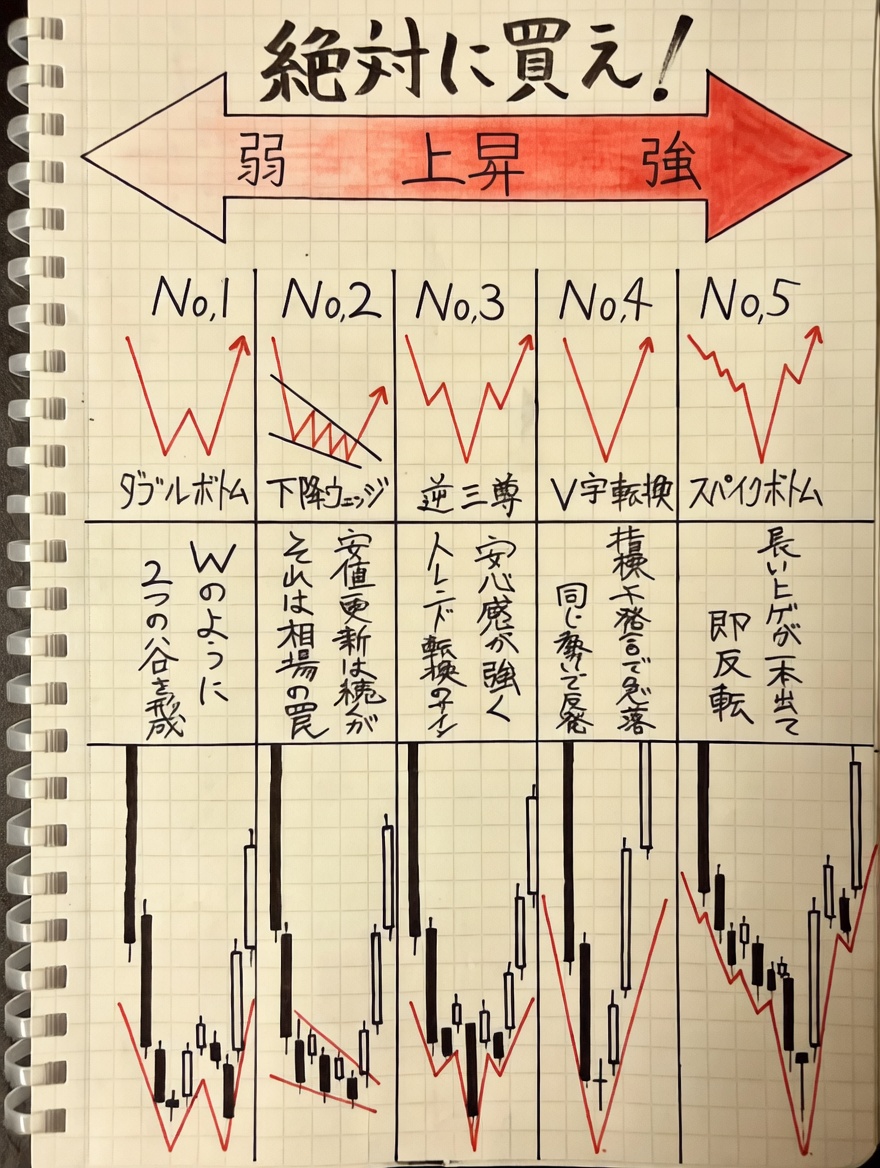 絶対に買え！
弱 上昇 強
No,1 No,2 No,3 No,4 No,5
ダブルボトム 下降ウェッジ 逆三尊 V字転換 スパイクボトム
Wのように
2つの谷を形成
安値更新は続くが
それは相場の罠
安心感が強く
トレンド転換のサイン
指標や発言で急落
同じ勢いで反発
長いヒゲが一本出て
即反転